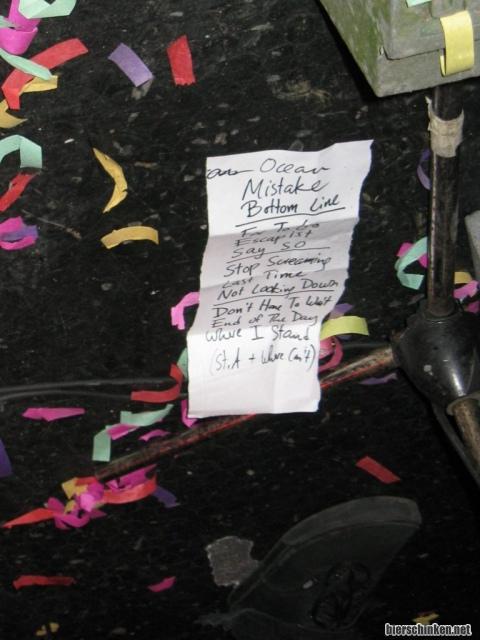 Ocean
Mistake
Bottom Line
Escapist
Say So
Stop Screaming
Last Time
Not Looking Down
Don't Have To Wait
End of The Day
Where I Stand
(St. A + Where Can't)
bierschinken.net